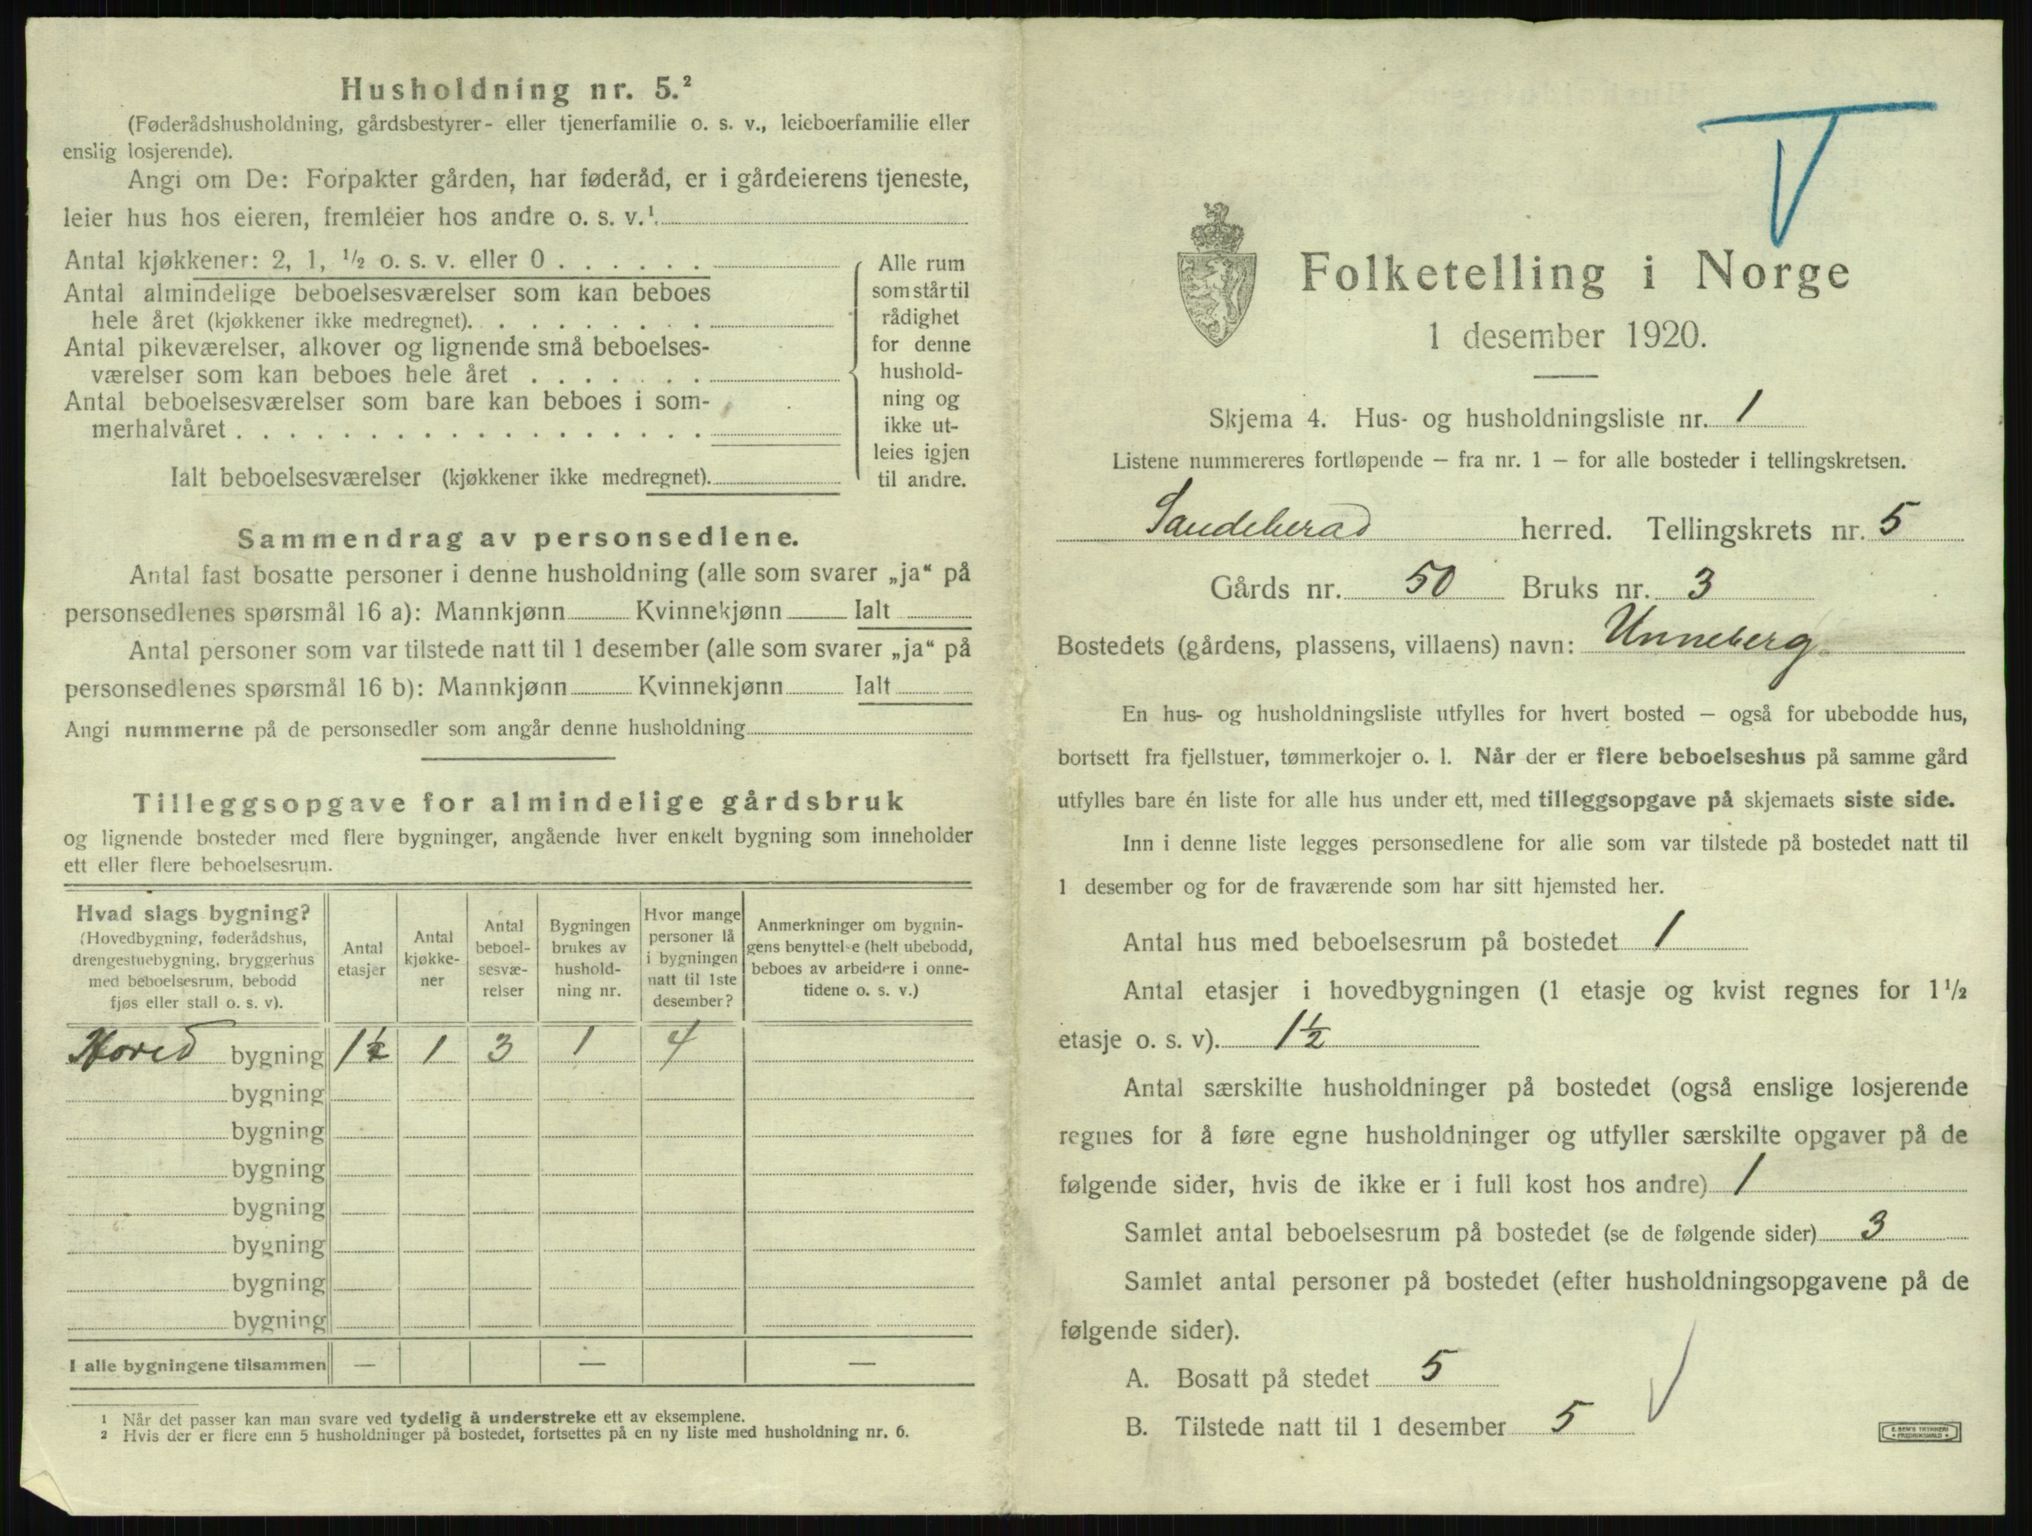 Husholdning nr. 5.²
(Føderådshusholdning, gårdsbestyrer- eller tjenerfamilie o. s. v., leieboerfamilie eller
enslig losjerende).
Angi om De: Forpakter gården, har føderåd, er i gårdeierens tjeneste,
leier hus hos eieren, fremleier hos andre o. s. v.¹
Antal kjøkkener: 2, 1, ½ o. s. v. eller 0 . . . . . .
Antal almindelige beboelsesværelser som kan beboes
hele året (kjøkkener ikke medregnet). . . . . . . . .
Antal pikeværelser, alkover og lignende små beboelses-
værelser som kan beboes hele året . . . . . . .
Antal beboelsesværelser som bare kan beboes i som-
merhalvåret . . . . . . . . . . . . . . . . . .
Ialt beboelsesværelser (kjøkkener ikke medregnet).
Alle rum
som står til
rådighet
for denne
hushold-
ning og
ikke ut-
leies igjen
til andre.
Sammendrag av personsedlene.
Antal fast bosatte personer i denne husholdning (alle som svarer „ja“ på
personsedlenes spørsmål 16 a): Mannkjønn Kvinnekjønn Ialt
Antal personer som var tilstede natt til 1 desember (alle som svarer „ja“ på
personsedlenes spørsmål 16 b): Mannkjønn Kvinnekjønn Ialt
Angi nummerne på de personsedler som angår denne husholdning
Tilleggsopgave for almindelige gårdsbruk
og lignende bosteder med flere bygninger, angående hver enkelt bygning som inneholder
ett eller flere beboelsesrum.
Hvad slags bygning?
(Hovedbygning, føderådshus,
drengestuebygning, bryggerhus
med beboelsesrum, bebodd
fjøs eller stall o. s. v).
Antal
etasjer
Antal
kjøkke-
ner
Antal
beboel-
sesvæ-
relser
Bygningen
brukes av
hushold-
ning nr.
Hvor mange
personer lå
i bygningen
natt til 1ste
desember?
Anmerkninger om bygnin-
gens benyttelse (helt ubebodd,
beboes av arbeidere i onne-
tidene o. s. v.)
Hoved bygning 1½ 1 3 1 4
bygning
bygning
bygning
bygning
bygning
bygning
bygning
I alle bygningene tilsammen — — —
¹ Når det passer kan man svare ved tydelig å understreke ett av eksemplene.
² Hvis der er flere enn 5 husholdninger på bostedet, fortsettes på en ny liste med husholdning nr. 6.
Folketelling i Norge
1 desember 1920.
Skjema 4. Hus- og husholdningsliste nr. 1
Listene nummereres fortløpende – fra nr. 1 – for alle bosteder i tellingskretsen.
Sandeherad herred. Tellingskrets nr. 5
Gårds nr. 50 Bruks nr. 3
Bostedets (gårdens, plassens, villaens) navn: Unneberg
En hus- og husholdningsliste utfylles for hvert bosted – også for ubebodde hus,
bortsett fra fjellstuer, tømmerkojer o. l. Når der er flere beboelseshus på samme gård
utfylles bare én liste for alle hus under ett, med tilleggsopgave på skjemaets siste side.
Inn i denne liste legges personsedlene for alle som var tilstede på bostedet natt til
1 desember og for de fraværende som har sitt hjemsted her.
Antal hus med beboelsesrum på bostedet 1
Antal etasjer i hovedbygningen (1 etasje og kvist regnes for 1½
etasje o. s. v). 1½
Antal særskilte husholdninger på bostedet (også enslige losjerende
regnes for å føre egne husholdninger og utfyller særskilte opgaver på de
følgende sider, hvis de ikke er i full kost hos andre) 1
Samlet antal beboelsesrum på bostedet (se de følgende sider) 3
Samlet antal personer på bostedet (efter husholdningsopgavene på de
følgende sider).
A. Bosatt på stedet 5
B. Tilstede natt til 1 desember 5